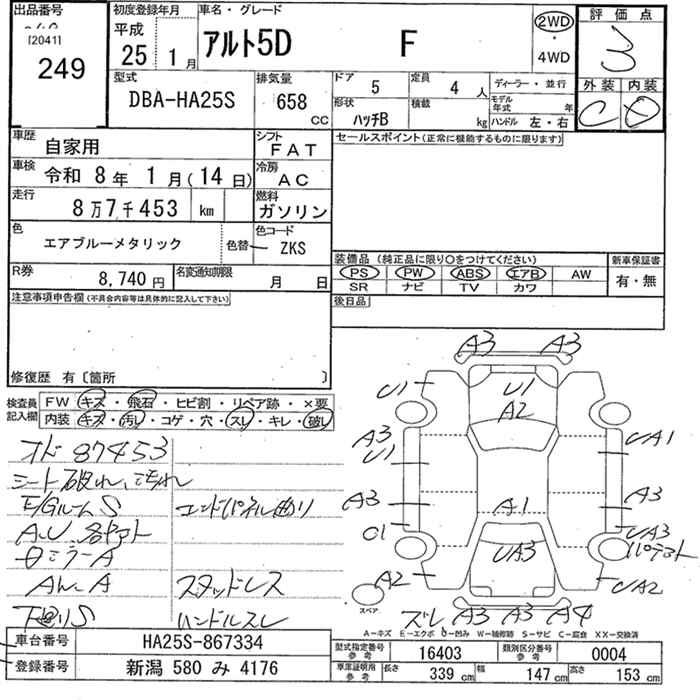 出品番号
[20411
249
初度登録年月
平成
25 1月
車名・グレード
アルト5D F
2WD
・
4WD
評価点
3
外装 内装
C D
型式
DBA-HA25S
排気量
658 CC
ドア 5
定員 4 人
ディーラー・並行
形状 ハッチB
積載 kg
モデル年式 年
ハンドル 左・右
車歴
自家用
シフト
FAT
セールスポイント(正常に機能するものに限ります)
車検
令和 8年 1月(14日)
冷房
AC
走行
8万7千453 km
燃料
ガソリン
色
エアブルーメタリック
色替
色コード
ZKS
装備品 (純正品に限り○をつけてください)
新車保証書
PS PW ABS エアB AW
SR ナビ TV カワ
有・無
R券
8,740円
名変通知期限
月 日
後日品
注意事項申告欄(不具合内容等は具体的に記入して下さい)
修復歴 有〔箇所 〕
検査員
記入欄
FW キズ・飛石・ヒビ割・リペア跡・×要
内装 キズ・汚レ・コゲ・穴・スレ・キレ・破レ
オド 87453
シート破れ、汚れ
E/GルームS
エンドパネル曲り
A、U 各ヤマト
ミラーA
スタッドレス
下廻りS
ハンドルスレ
A3 A3
U1 U1
A2
A3
U1
UA1
A3 A1 A3
C1
UA3
UA3
A2 UA2
スペア
ズレ A3 A3 A4
A-キズ E-エクボ U-凹み W-補修跡 S-サビ C-腐食 XX-交換済
車台番号
HA25S-867334
登録番号
新潟 580 み 4176
型式指定番号
参考
16403
類別区分番号
参考
0004
車庫証明用
参考
長さ 339 cm
幅 147 cm
高さ 153 cm